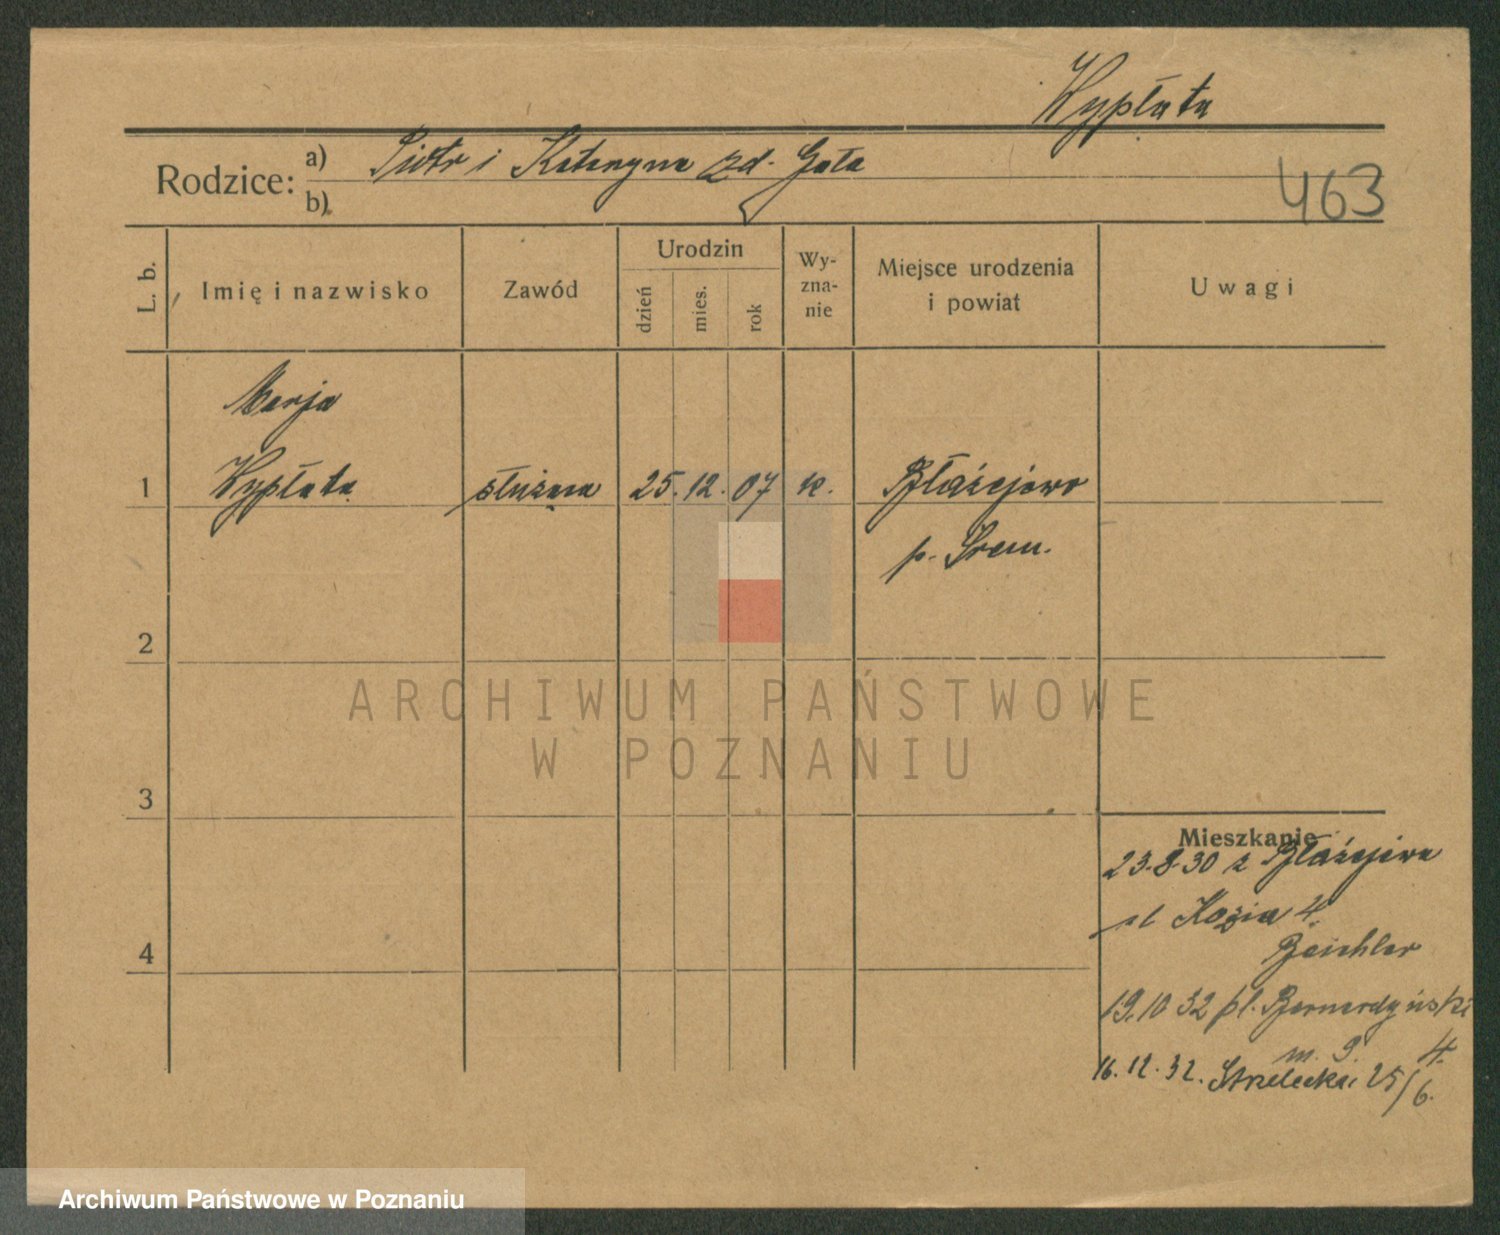 Wypłata
Rodzice: a) Piotr i Katarzyna zd. Gała
b)
463
L. b. Imię i nazwisko Zawód Urodzin dzień mies. rok Wy-zna-nie Miejsce urodzenia i powiat Uwagi
Marja
1 Wypłata służąca 25. 12. 07 k. Błażejewo
p. Śrem.
2
ARCHIWUM PAŃSTWOWE
W POZNANIU
3
Mieszkanie
23.8.30 z Błażejewa
ul Kozia 4.
4
Beichler
19.10 32 pl. Bernardyński
m. 9. 4.
16.12.32. Strzelecka 25/6.
Archiwum Państwowe w Poznaniu